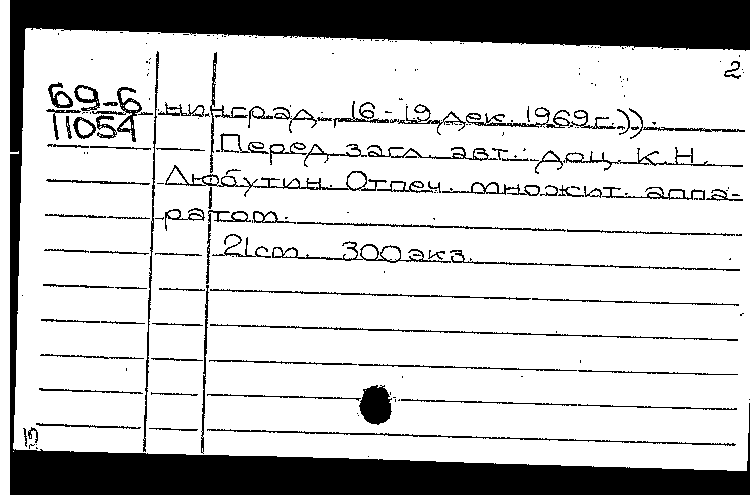 2
69-6
11054
нинград. 16-19 дек. 1969г.)).
Перед загл. авт.: доц. К.Н.
Любутин. Отпеч. множит. аппа-
ратом.
21 см. 300 экз.